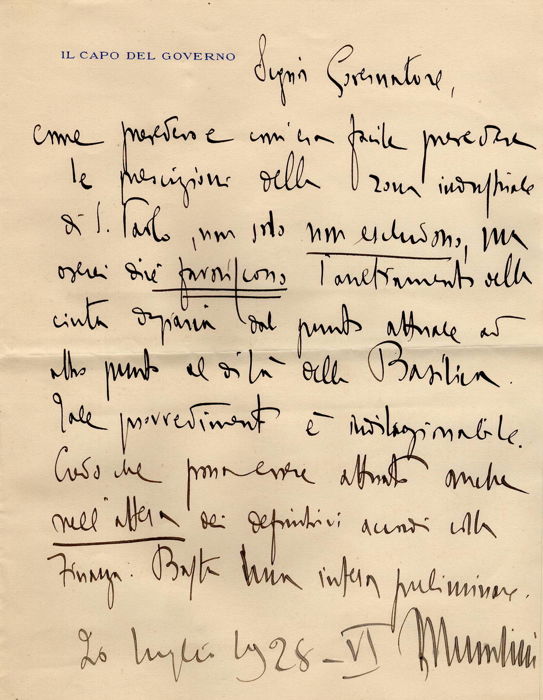 IL CAPO DEL GOVERNO
Signor Governatore,
come prevedevo e com'era facile prevedere
le prescrizioni della zona industriale
di S. Paolo, non solo non escludono, ma
oserei dire favoriscono l'arretramento della
cinta daziaria dal punto attuale ad
altro punto al di là della Basilica.
Tale provvedimento è indilazionabile.
Credo che possa essere attuato anche
nell'attesa dei definitivi accordi colla
Finanza. Basta una intesa preliminare.
20 luglio 1928 - VI Mussolini